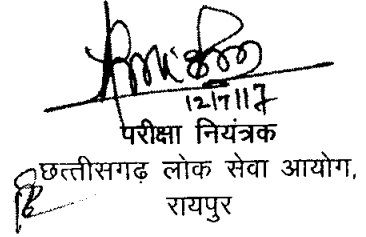 12/7/17
परीक्षा नियंत्रक
छत्तीसगढ़ लोक सेवा आयोग,
रायपुर